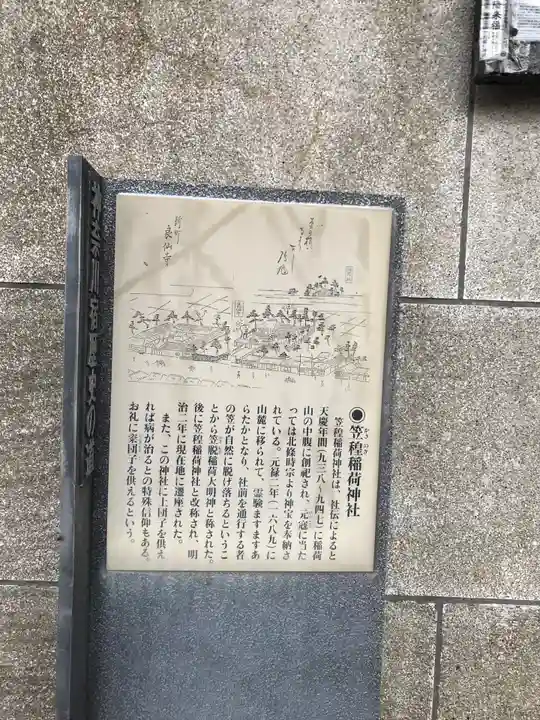 神奈川宿歴史の道
◉笠䅣稲荷神社
かさのぎ
笠䅣稲荷神社は、社伝によると
天慶年間(九三八〜九四七)に稲荷
山の中腹に創祀され、元寇に当た
っては北條時宗より神宝を奉納さ
れている。元禄二年(一六八九)に
山麓に移られて、霊験ますますあ
らたかとなり、社前を通行する者
の笠が自然に脱げ落ちるというこ
とから笠脱稲荷大明神と称された。
後に笠䅣稲荷神社と改称され、明
治二年に現在地に遷座された。
また、この神社に土団子を供え
れば病が治るとの特殊信仰もある。
お礼に米団子を供えるという。